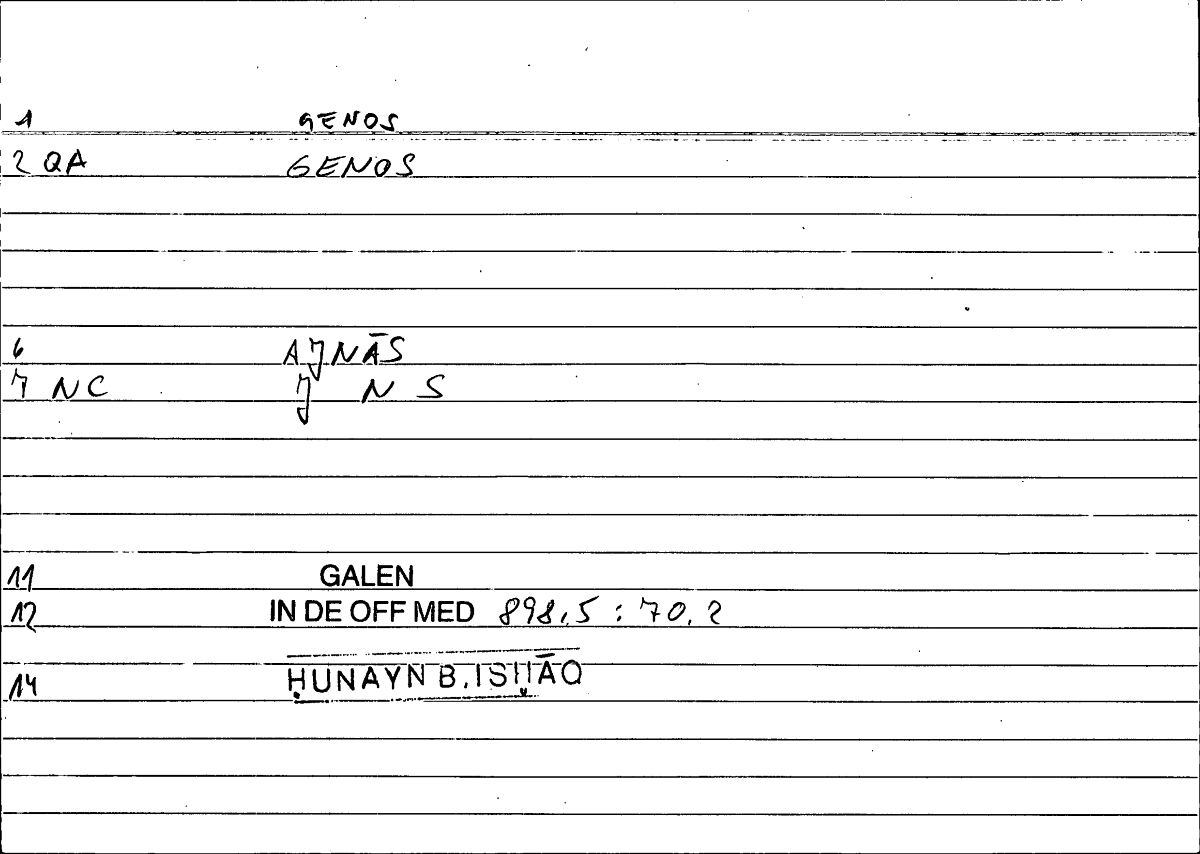 1 GENOS
2 QA GENOS
6 AJNĀS
7 NC J N S
11 GALEN
12 IN DE OFF MED 898,5 : 70,2
14 ḤUNAYN B. ISḤĀQ